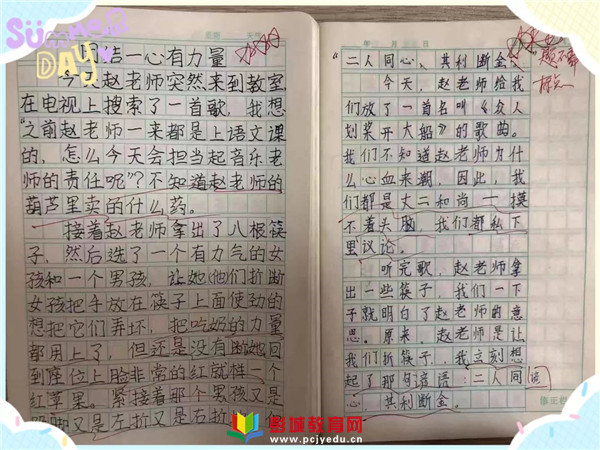 SUMMER
DAY
团结一心有力量
今天赵老师突然来到教室,
在电视上搜索了一首歌，我想
“之前赵老师一来都是上语文课
的，怎么今天会担当起音乐老
师的责任呢”？不知道赵老师的
葫芦里卖的什么药。
接着赵老师拿出了八根筷
子，然后选了一个有力气的女
孩和一个男孩，让她(他们)折断
女孩把手放在筷子上面使劲的
想把它们弄坏，把吃奶的力量
都用上了，但还是没有断她回
到座位上脸非常的红就桂一个
红苹果。紧接着那个男孩又是
又是左折又是右折
二人同心、其利断金
今天，赵老师给我
们放了一首名叫《众人
划桨开大船》的歌曲。
我们不知道赵老师为什
么心血来潮，因此，我
们都是丈二和尚——摸
不着头脑，我们都私下
里议论。
听完歌，赵老师拿
出一些筷子，我们一下
子就明白了赵老师的意
思。原来，赵老师是让
我们折筷子，我立刻想
起了那句谚语：二人同
心，其利断金。
郸城教育网
www.pcjyedu.cn